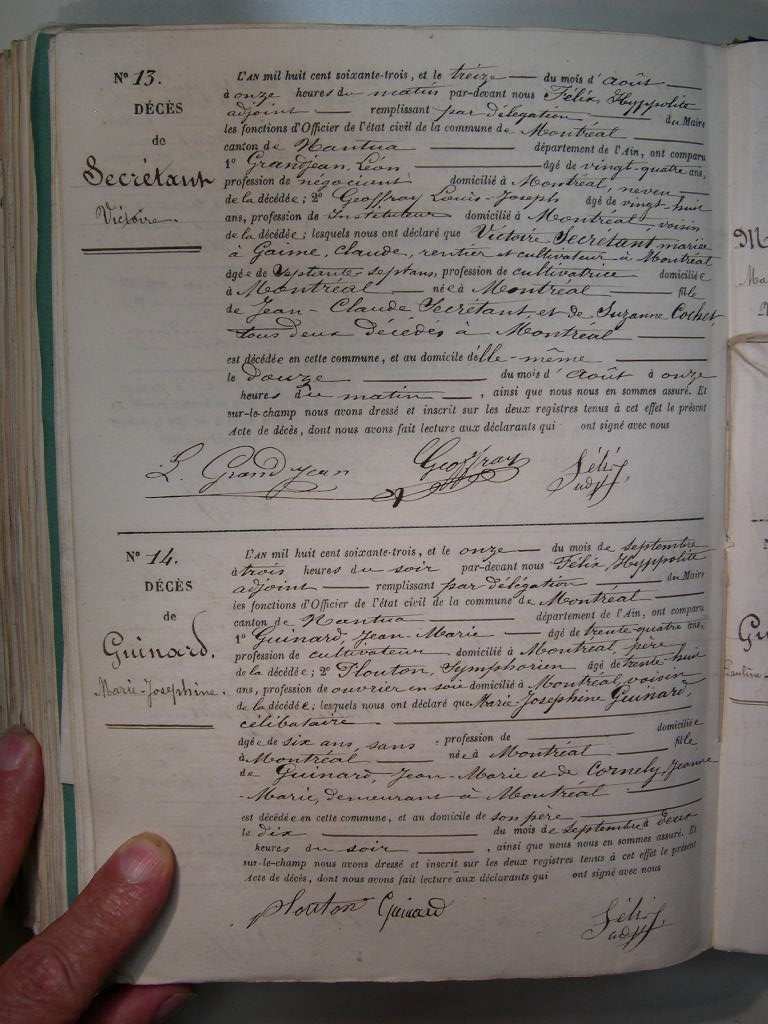 N° 13.
DÉCÈS
de
Secrétant
Victoire.
L'AN mil huit cent soixante-trois, et le treize du mois d'août
à onze heures du matin par-devant nous Félix, Hyppolite
adjoint remplissant par délégation du Maire
les fonctions d'Officier de l'état civil de la commune de Montréal
canton de Nantua département de l'Ain, ont comparu
1° Grandjean Léon âgé de vingt-quatre ans,
profession de négociant domicilié à Montréal, neveu
de la décédée; 2° Geoffray Louis-Joseph âgé de vingt-huit
ans, profession de Instituteur domicilié à Montréal, voisin
de la décédée; lesquels nous ont déclaré que Victoire, Secrétant mariée
à Gaime, Claude, rentier et cultivateur à Montréal
âgée de Septante sept ans, profession de cultivatrice domiciliée
à Montréal née à Montréal fille
de Jean-Claude Secrétant, et de Suzanne Cochet
tous deux Décédés à Montréal
est décédée en cette commune, et au domicile d'elle-même
le Douze du mois d'Août à onze
heures du matin, ainsi que nous nous en sommes assuré. Et
sur-le-champ nous avons dressé et inscrit sur les deux registres tenus à cet effet le présent
Acte de décès, dont nous avons fait lecture aux déclarants qui ont signé avec nous
L. Grandjean Geoffray Félix
adjt
N° 14.
DÉCÈS
de
Guinard.
Marie-Josephine.
L'AN mil huit cent soixante-trois, et le onze du mois de septembre
à trois heures du soir par-devant nous Félix, Hyppolite
adjoint remplissant par délégation du Maire
les fonctions d'Officier de l'état civil de la commune de Montréal
canton de Nantua département de l'Ain, ont comparu
1° Guinard, Jean-Marie âgé de trente-quatre ans,
profession de cultivateur domicilié à Montréal, père
de la décédée; 2° Plouton, Symphorien âgé de trente-huit
ans, profession de ouvrier en soie domicilié à Montréal, voisin
de la décédée; lesquels nous ont déclaré que Marie-Josephine Guinard,
célibataire
âgée de six ans, sans profession de domiciliée
à Montréal née à Montréal fille
de Guinard, Jean-Marie et de Cornely, Jeanne
-Marie, demeurant à Montréal
est décédée en cette commune, et au domicile de son père
le dix du mois de septembre à deux
heures du soir, ainsi que nous nous en sommes assuré. Et
sur-le-champ nous avons dressé et inscrit sur les deux registres tenus à cet effet le présent
Acte de décès, dont nous avons fait lecture aux déclarants qui ont signé avec nous
plouton Guinard Félix
adjt